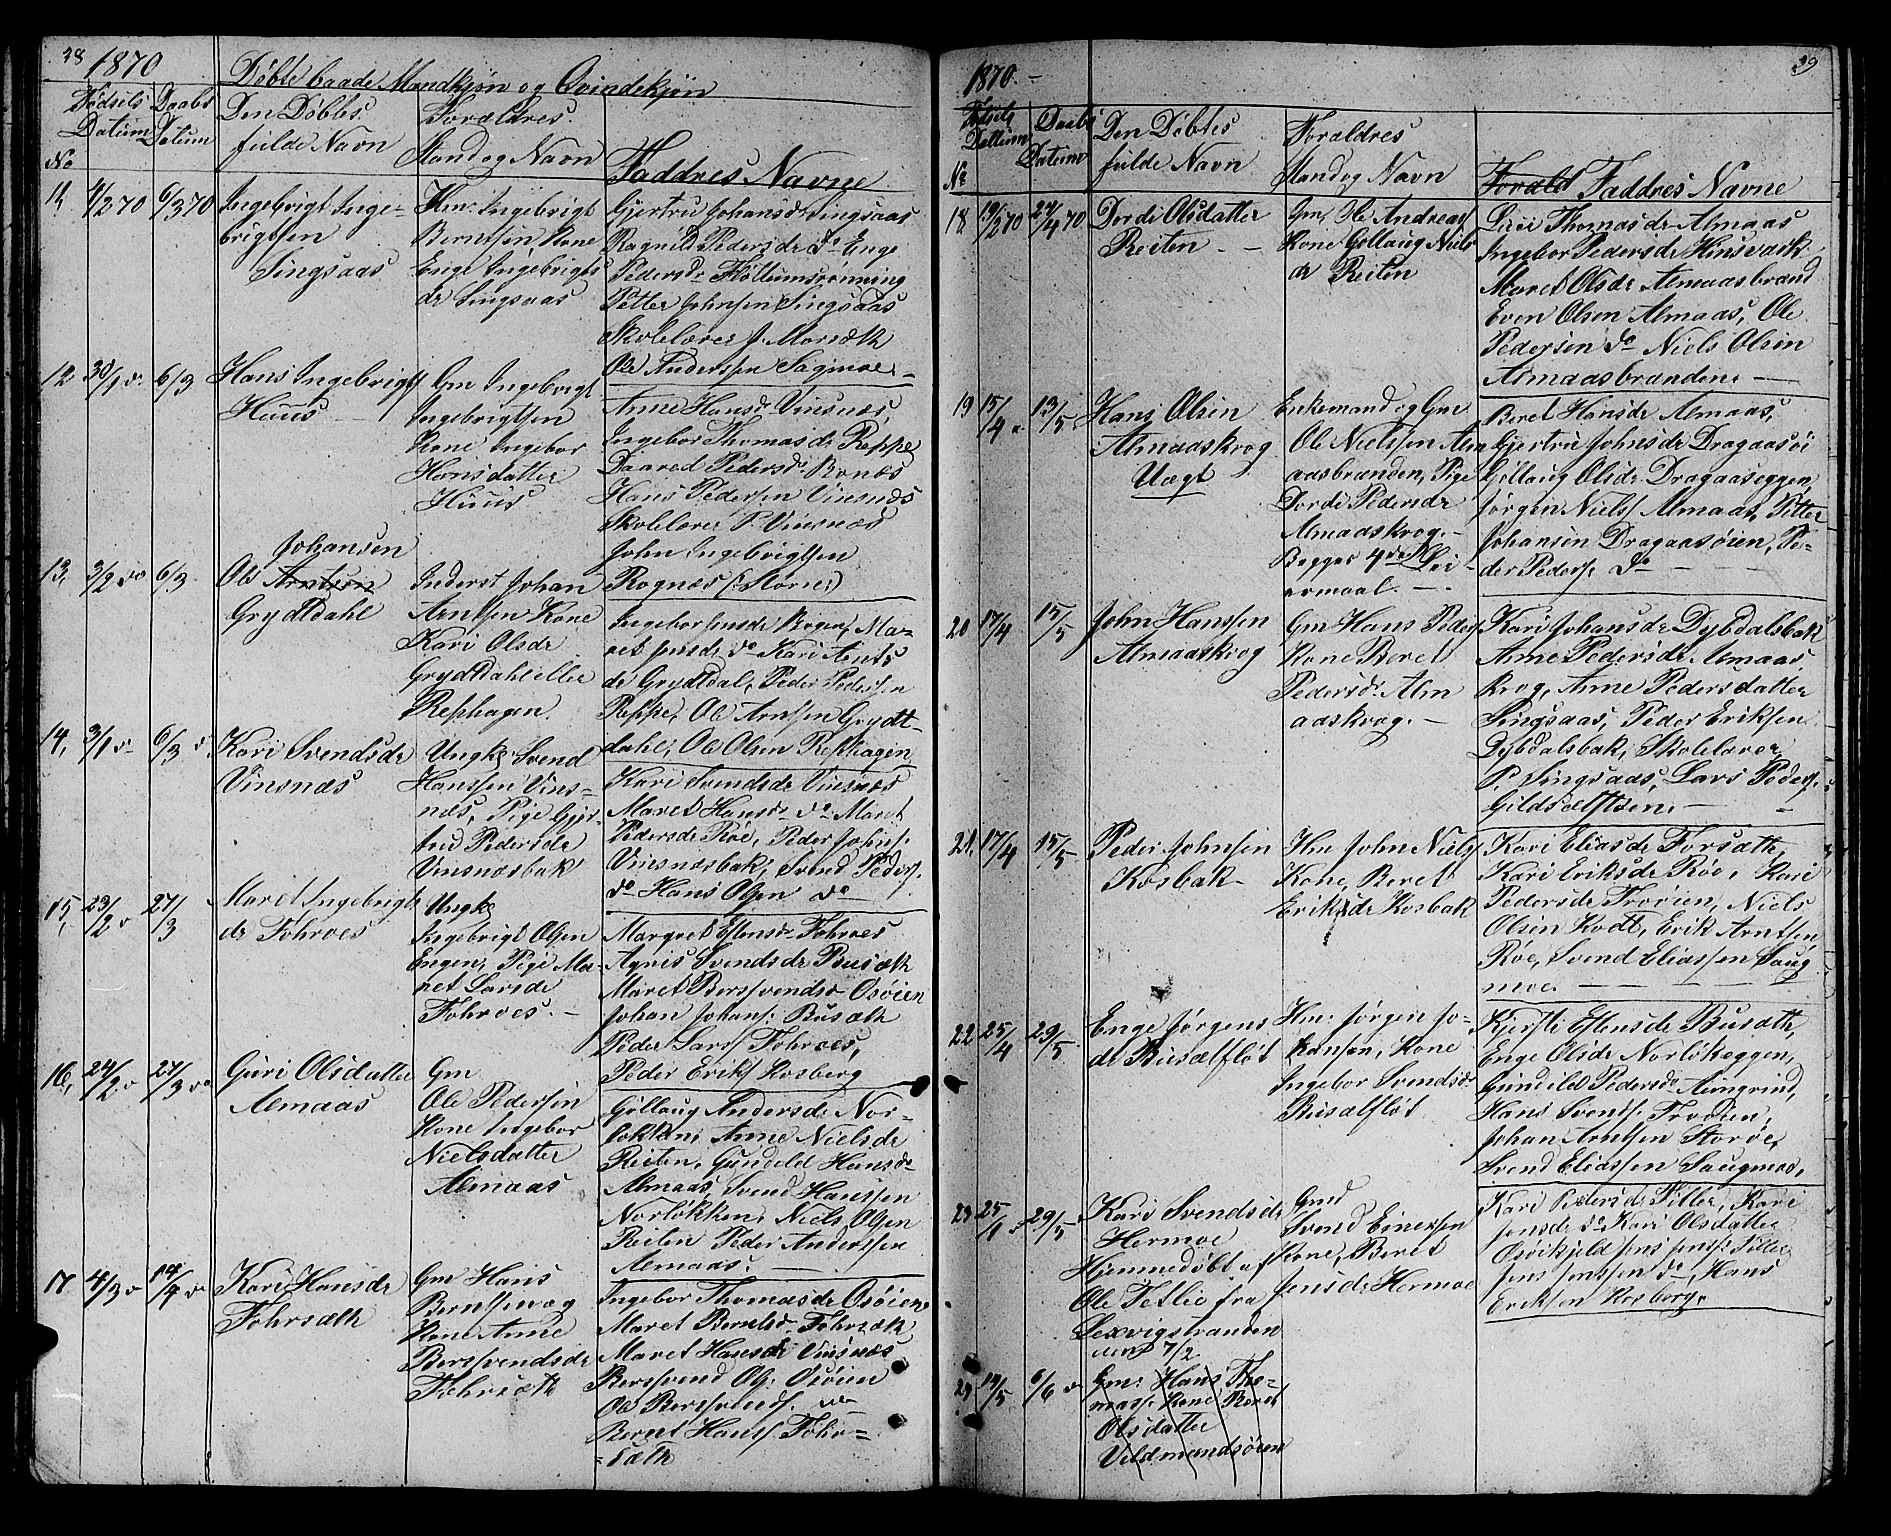 38 1870
Døbte baade Mandkjøn og Qvindekjøn
Fødsels Daabs Den Døbtes Forældres
Datum Datum fulde Navn Stand og Navn Faddres Navne
No
11, 4/2 70 6/3 70
Ingebrigt Inge-
brigtsen
Singsaas
Hm: Ingebrigt
Berntsen Kone
Enge Ingebrigts
dr Singsaas
Gjertru Johansdr Singsaas
Ragnild Pedersdr do Enge
Pedersdr Fløttumsrønning
Petter Johnsen Singsaas
Skolelærer J. Morsæth
Ole Anderssen Sagmoe
12 30/1 do 6/3
Hans Ingebrigts
Huus
Gm Ingebrigt
Ingebrigtsen
Kone Ingebor
Hansdatter
Huus
Anne Hansdr Vinsnæs
Ingebor Thomasdr Reppe
Pedersdr Bonæs
Hans Pedersen Vinsnæs
Skolelærer P. Vinsnæs
John Ingebrigtsen
Rognæs (Støren)
13, 3/2 do 6/3
Johansen
Ole Arntsen
Grydtdahl
Inderst Johan
Arntsen Kone
Kari Olsdr
Grydtdahl eller
Rephagen.
Ingebor Jensdr Rogn, Ma-
ret Jensdr do Kari Arnts
dr Grydtdal, Peder Pedersen
Reppe, Ole Arntsen Grydt
dahl, Ole Olsen Rephagen
14, 3/1 do 6/3 do
Kari Svendsdr
Vinsnæs
Ungk: Svend
Hanssen Vins-
næs, Pige Gjer-
tru Pedersdr
Vinsnæsbak
Kari Svendsdr Vinsnæs
Maret Hansdr do Maret
Pedersdr Røe, Peder Johns:
Vinsnæsbak, Svend Peders.
do Hans Olsen do
15, 23/2 do 27/3
Maret Ingebrigts
dr Fohroes
Ungk
Ingebrigt Olsen
Engen, Pige Ma-
ret Larsdr
Fohroes. -
Margret Estensdr Fohroes
Agnis Svendsdr Busæth
Maret Berssvendsdr Osøien
Johan Johans: Busæth
Peder Larss Fohroes,
Peder Eriks Kosberg
16, 24/2 do 27/3 do
Guri Olsdatter
Almaas
Gm
Ole Pedersen
Kone Ingebor
Nielsdatter
Almaas
Gollaug Andersdr Nor-
løkken, Anne Nielsdr
Reiten, Gunild Hansdr
Almaas, Svend Hanssen
Norløkken, Niels Olsen
Reiten Peder Anderssen
Almaas.
17 4/3 do 14/4 do
Kari Hansdr
Fohrsæth
Gm Hans
Berntsen og
Kone Anne
Berssvendsdr
Fohrsæth
Ingebor Thomasdr Osøien
Maret Berntsdr Fohrsæth
Maret Hansdr Vinsnæs
Berssvend Ols: Osøien
Ole Berssvends. do
Bernt Hanss Fohr-
sæth
39
1870. -
Fødsels Daabs Den Døbtes Forældres
Dattum Datum fulde Navn Stand og Navn Foræld Faddres Navne
No
18, 19/2 70 24/4 70
Dordi Olsdatter
Reiten -
Gm, Ole Andreas
Kone Gollaug Niels
dr Reiten
Luci Thomasdr Almaas
Ingebor Pedersdr Kinsvask
Maret Olsdr Almaasbrand
Even Olsen Almaas, Ole
Pedersen do Niels Olsen
Almaasbranden -
19 15/4 do 13/5
Hans Olsen
Almaaskrog
Uægt
Enkemand og Gm
Ole Nielssen Alm
aasbranden, Pige
Dordi Pedersdr
Almaaskrog. -
Begges 4de Lei-
ermaal. -
Beret Hansdr Almaas,
Gjertru Johnsdr Dragaasøi
Gollaug Olsdr Dragaaseggen,
Jørgen Niels Almaas, Petter
Johansen Dragaasøien, Pe-
der Peders do
20 17/4 15/5
John Hanssen
Almaaskrog
Gm Hans Peders
Kone Beret
Pedersdr Alm
aaskrog. -
Kari Johansdr Dybdalsbak
Anne Pedersdr Almaas
krog, Anne Pedersdatter
Singsaas, Peder Eriksen
Dybdalsbak, Skolelærer
P. Singsaas, Lars Peders.
Gildsætstøen. -
21, 17/4 15/5
Peder Johnsen
Kosbak
Hm John Niels
Kone, Beret
Eriksdr Kosbak
Kari Eliasdr Forsæth,
Kari Eriksdr Røe, Kari
Pedersdr Frøien, Niels
Olsen Kodt, Erik Arntsen
Røe, Svend Eliassen Saug
moe.
22 25/4 29/5
Enge Jørgens
dr Busætfløt
Hm: Jørgen Jo-
hansen, Kone
Ingebor Svendsdr
Busætfløt
Kjersti Estensdr Busæth,
Enge Olsdr Norløkeggen,
Gunild Pedersdr Aungrind,
Hans Svends: Frøien,
Johan Arntsen Storøe,
Svend Eliassen Saugmoe,
23 25/1 29/5
Kari Svendsdr
Hermoe
Hjemmedøbt af
Ole Tetlie fra
Lexvigstranden
7/2
Gmd
Svend Einersen
Kone, Beret
Jensdr Hermoe
Kari Pedersdr Tiller, Kari
Jensdr do Kari Olsdatter
Osvikjeld Jens Jens: Tiller
Jens Jenssen do Hans
Eriksen Kosberg.
24 14/5 6/6 do
Gm: Hans Tho-
mass: Kone Beret
Olsdatter
Vildmandsøien